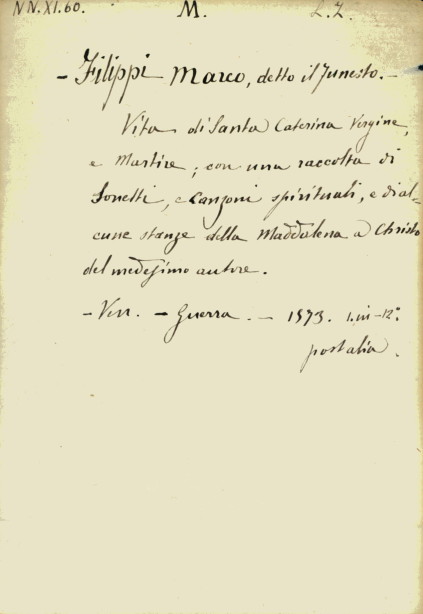 NN.XI.60. M. L.Z.
- Filippi Marco, detto il Funesto. -
Vita di Santa Caterina Vergine,
e Martire; con una raccolta di
Sonetti, e Canzoni spirituali, e di al-
cune stanze della Maddalena a Christo
del medesimo autore.
- Ven. - Guerra. - 1573. 1. in - 12.°
post alia.